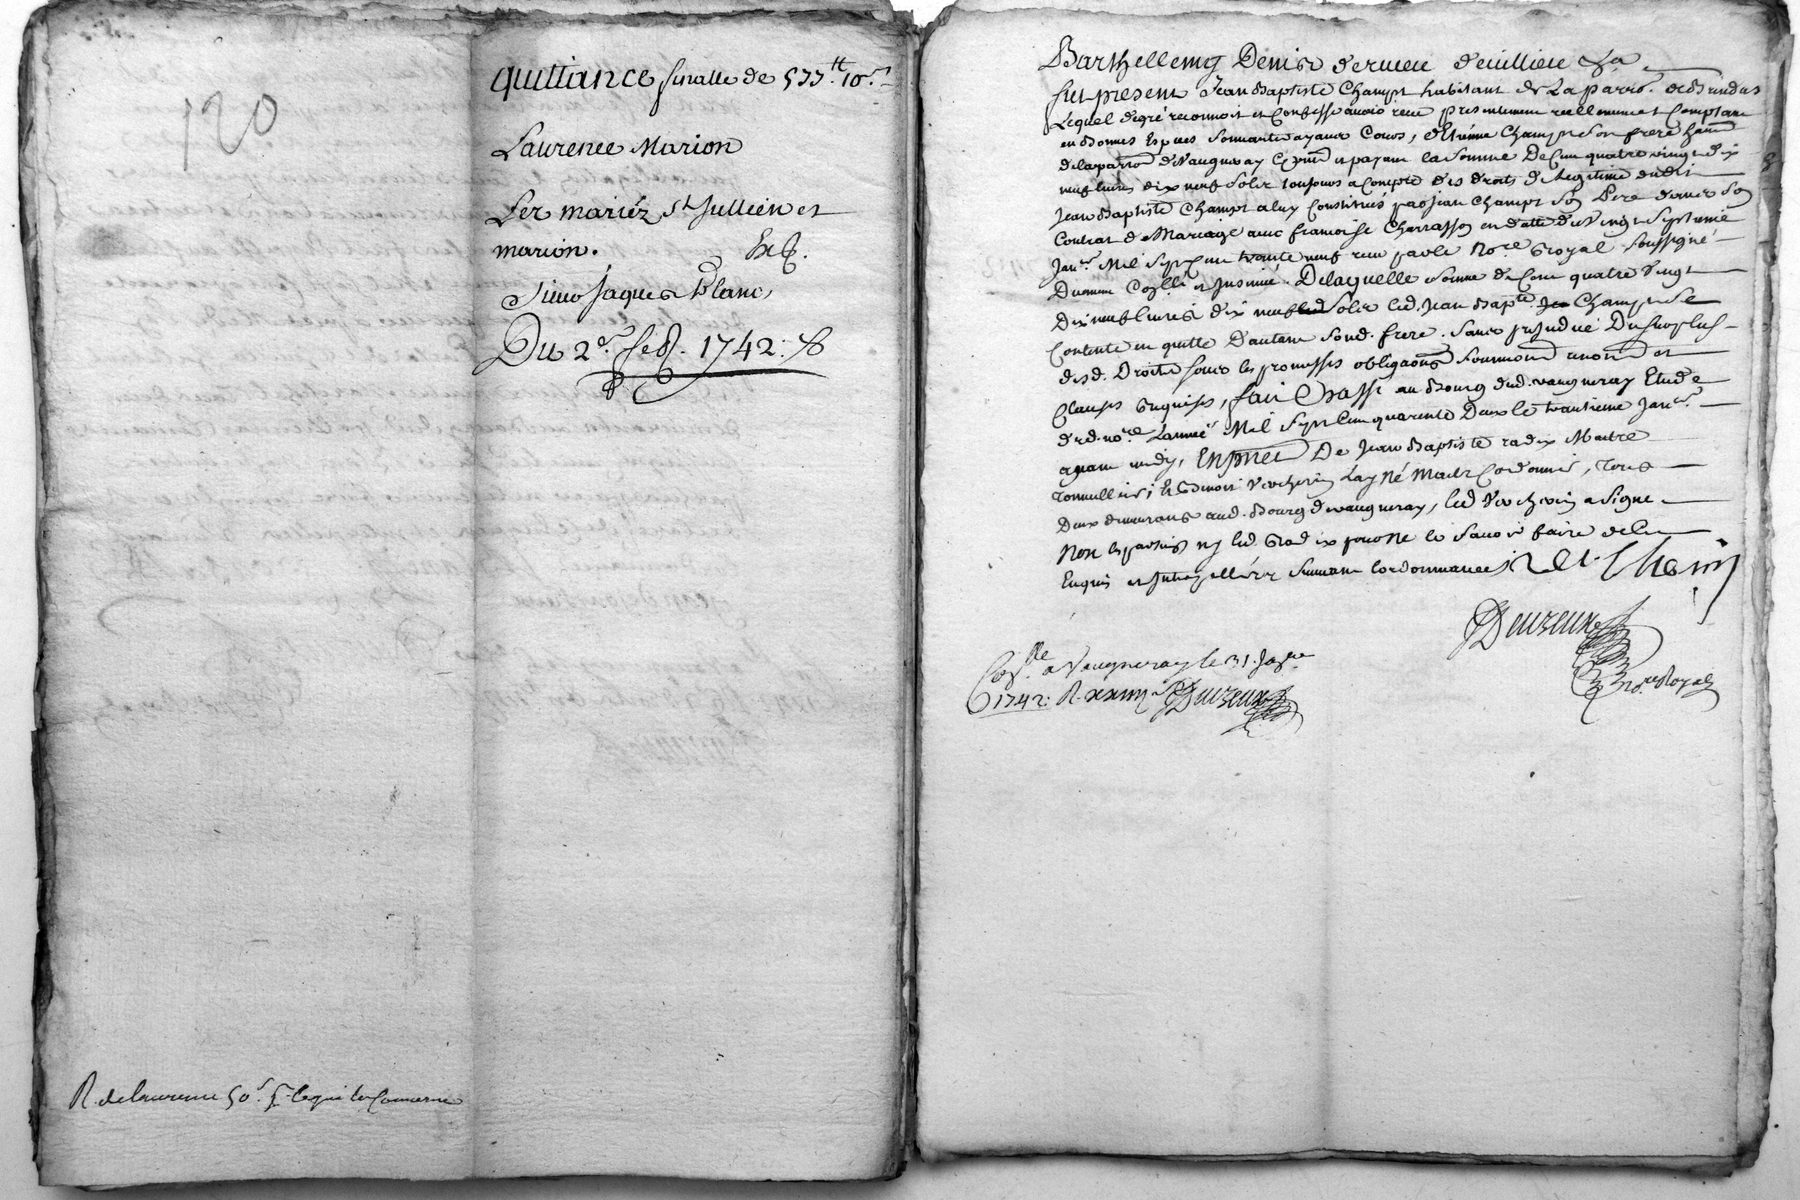 120
quittance finalle de 577tt 10s
Laurence Marion
Les mariéz St Jullien et
marion.
Sieur Jaques Blanc
Du 2e. feb. 1742.
R. de laurence 50s
Barthellemy Denis
fut present Jean Baptiste Champt habitant de La parro. de Brindas
Lequel degré reconnoit et Confesse avoir receu presentement reellement et Comptant
en Bonnes Espèces Sonnantes ayant Cours, d'Etienne Champt Son frere han
de la parro d'Vaugneray et payant la Somme De Cent quatre vingt dix
neuf livres dix neuf Solz toujours a Compte des droits de legitime dudit
Jean Baptiste Champt a luy Constitués par Jean Champt Son Pere dans Son
Contrat de Mariage avec francoise Charrasson en datte du Vingt Septieme
Janer. Mil Sept Cent trente neuf receu par le Nore Royal Soussigné
Duement Collé et Insinué. De laquelle Somme de Cent quatre Vingt
Dix neuf livres dix neuf Solz led. Jean Bapte. Champt Se
Contente en quitte D'autant Sond. frere. Sans prejudice Du Surplus
desd. Droits Sous les promesses obligaons Soumions renons et
Clauses Requises, fait & passé au Bourg dud. vaugneray Etude
dud. nore. L'année Mil Sept Cent quarente Deux le trentieme Janer.
avant midy, En pnce De Jean Baptiste radix Maitre
Tonnellier, & Benoit Verchery Layné Maitre Cordonnier, Tous
Deux demeurans aud. Bourg de vaugneray, led Verchery a Signé
Non les parties ny led. Radix pour ne le Savoir faire de ce
Enquis et Interpellés Suivant l'ordonnance
Verchery
Deurieux
Nore Royal
Collé a Vaugneray le 31. Janer
1742. R. Deurieux